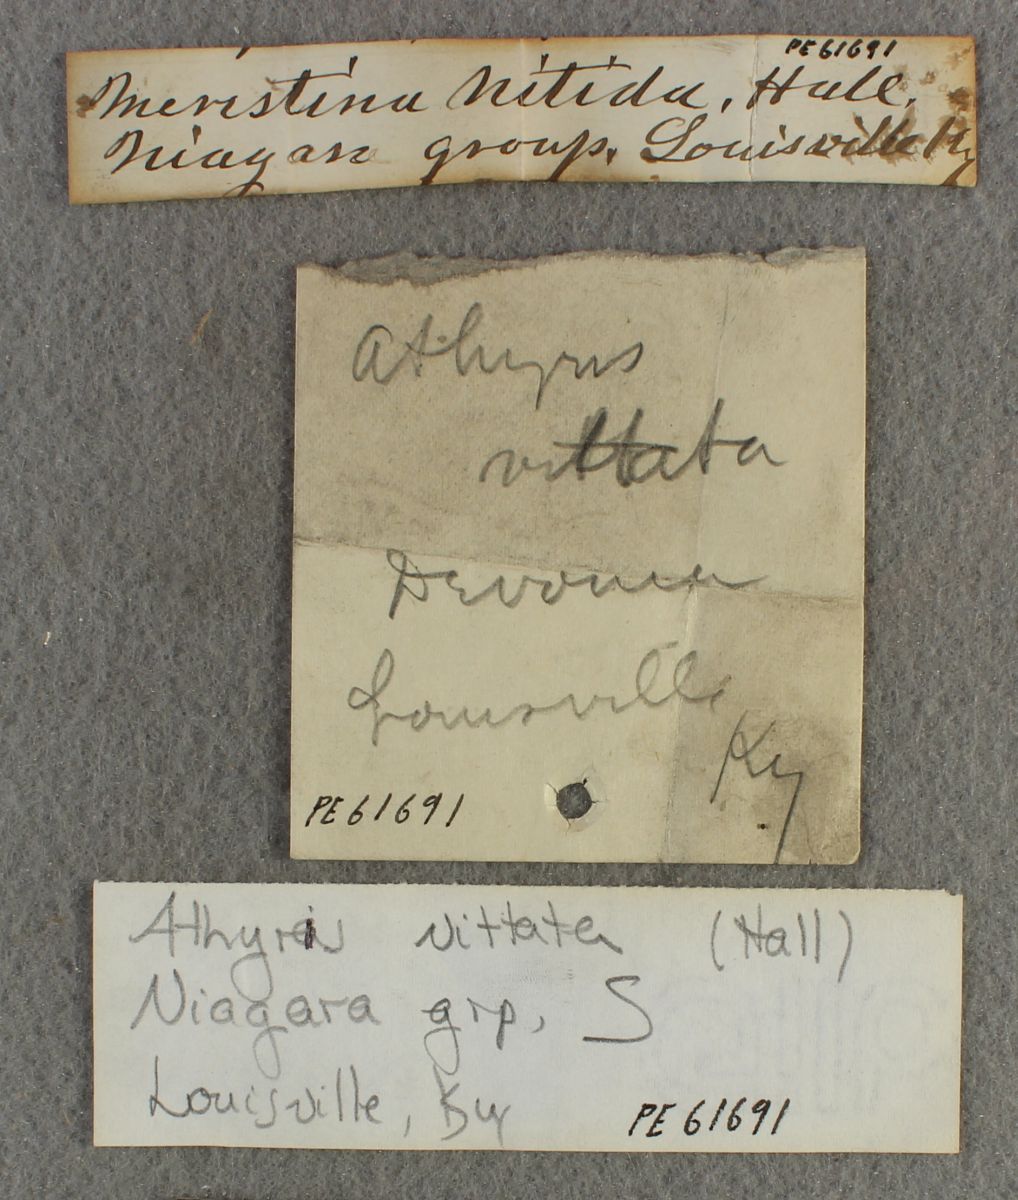 PE61691
Meristina Nitida, Hall.
Niagara group. Louisville Ky
Athyris
vittata
Devonian
Louisville
Ky
PE61691
Athyris vittata (Hall)
Niagara grp, S
Louisville, Ky
PE61691